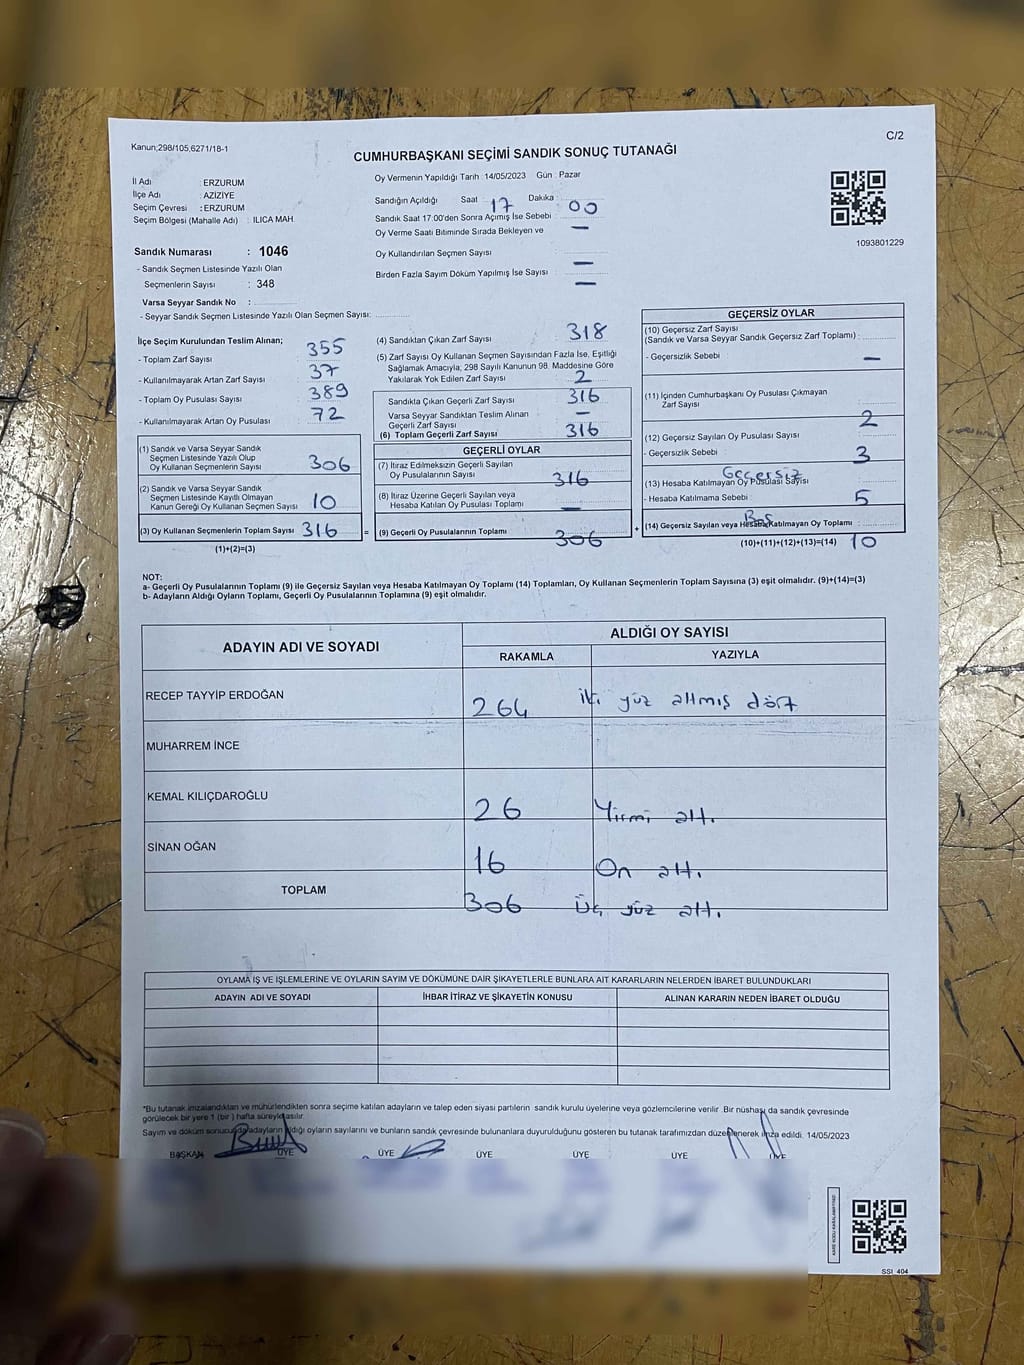 Kanun;298/105,6271/18-1
C/2
CUMHURBAŞKANI SEÇİMİ SANDIK SONUÇ TUTANAĞI
İl Adı : ERZURUM
İlçe Adı : AZİZİYE
Seçim Çevresi : ERZURUM
Seçim Bölgesi (Mahalle Adı) : ILICA MAH.
Oy Vermenin Yapıldığı Tarih : 14/05/2023 Gün : Pazar
Sandığın Açıldığı Saat : 17 Dakika : 00
Sandık Saat 17:00'den Sonra Açımış İse Sebebi : —
Oy Verme Saati Bitiminde Sırada Bekleyen ve
Oy Kullandırılan Seçmen Sayısı : —
Birden Fazla Sayım Döküm Yapılmış İse Sayısı : —
1093801229
Sandık Numarası : 1046
- Sandık Seçmen Listesinde Yazılı Olan
Seçmenlerin Sayısı : 348
Varsa Seyyar Sandık No :
- Seyyar Sandık Seçmen Listesinde Yazılı Olan Seçmen Sayısı:
İlçe Seçim Kurulundan Teslim Alınan;
- Toplam Zarf Sayısı : 355
- Kullanılmayarak Artan Zarf Sayısı : 37
- Toplam Oy Pusulası Sayısı : 389
- Kullanılmayarak Artan Oy Pusulası : 72
(1) Sandık ve Varsa Seyyar Sandık
Seçmen Listesinde Yazılı Olup
Oy Kullanan Seçmenlerin Sayısı : 306
(2) Sandık ve Varsa Seyyar Sandık
Seçmen Listesinde Kayıtlı Olmayan
Kanun Gereği Oy Kullanan Seçmen Sayısı : 10
(3) Oy Kullanan Seçmenlerin Toplam Sayısı : 316
(1)+(2)=(3)
=
(4) Sandıktan Çıkan Zarf Sayısı : 318
(5) Zarf Sayısı Oy Kullanan Seçmen Sayısından Fazla İse, Eşitliği
Sağlamak Amacıyla; 298 Sayılı Kanunun 98. Maddesine Göre
Yakılarak Yok Edilen Zarf Sayısı : 2
Sandıkta Çıkan Geçerli Zarf Sayısı : 316
Varsa Seyyar Sandıktan Teslim Alınan
Geçerli Zarf Sayısı : —
(6) Toplam Geçerli Zarf Sayısı : 316
GEÇERLİ OYLAR
(7) İtiraz Edilmeksizin Geçerli Sayılan
Oy Pusulalarının Sayısı : 316
(8) İtiraz Üzerine Geçerli Sayılan veya
Hesaba Katılan Oy Pusulası Toplamı : —
(9) Geçerli Oy Pusulalarının Toplamı : 306
+
GEÇERSİZ OYLAR
(10) Geçersiz Zarf Sayısı
(Sandık ve Varsa Seyyar Sandık Geçersiz Zarf Toplamı) :
- Geçersizlik Sebebi : —
(11) İçinden Cumhurbaşkanı Oy Pusulası Çıkmayan
Zarf Sayısı : 2
(12) Geçersiz Sayılan Oy Pusulası Sayısı :
- Geçersizlik Sebebi : 3
Geçersiz
(13) Hesaba Katılmayan Oy Pusulası Sayısı
- Hesaba Katılmama Sebebi : 5
Boş
(14) Geçersiz Sayılan veya Hesaba Katılmayan Oy Toplamı :
(10)+(11)+(12)+(13)=(14) 10
NOT:
a- Geçerli Oy Pusulalarının Toplamı (9) ile Geçersiz Sayılan veya Hesaba Katılmayan Oy Toplamı (14) Toplamları, Oy Kullanan Seçmenlerin Toplam Sayısına (3) eşit olmalıdır. (9)+(14)=(3)
b- Adayların Aldığı Oyların Toplamı, Geçerli Oy Pusulalarının Toplamına (9) eşit olmalıdır.
ADAYIN ADI VE SOYADI
ALDIĞI OY SAYISI
RAKAMLA YAZIYLA
RECEP TAYYİP ERDOĞAN 264 iki yüz altmış dört
MUHARREM İNCE
KEMAL KILIÇDAROĞLU 26 Yirmi altı
SİNAN OĞAN 16 On altı
TOPLAM 306 Üç yüz altı
OYLAMA İŞ VE İŞLEMLERİNE VE OYLARIN SAYIM VE DÖKÜMÜNE DAİR ŞİKAYETLERLE BUNLARA AİT KARARLARIN NELERDEN İBARET BULUNDUKLARI
ADAYIN ADI VE SOYADI İHBAR İTİRAZ VE ŞİKAYETİN KONUSU ALINAN KARARIN NEDEN İBARET OLDUĞU
*Bu tutanak imzalandıktan ve mühürlendikten sonra seçime katılan adayların ve talep eden siyasi partilerin sandık kurulu üyelerine veya gözlemcilerine verilir. Bir nüshası da sandık çevresinde
görülecek bir yere 1 (bir ) hafta süreyle asılır.
Sayım ve döküm sonucunda adayların aldığı oyların sayılarını ve bunların sandık çevresinde bulunanlara duyurulduğunu gösteren bu tutanak tarafımızdan düzenlenerek imza edildi. 14/05/2023
BAŞKAN ÜYE ÜYE ÜYE ÜYE ÜYE ÜYE
SSI_404